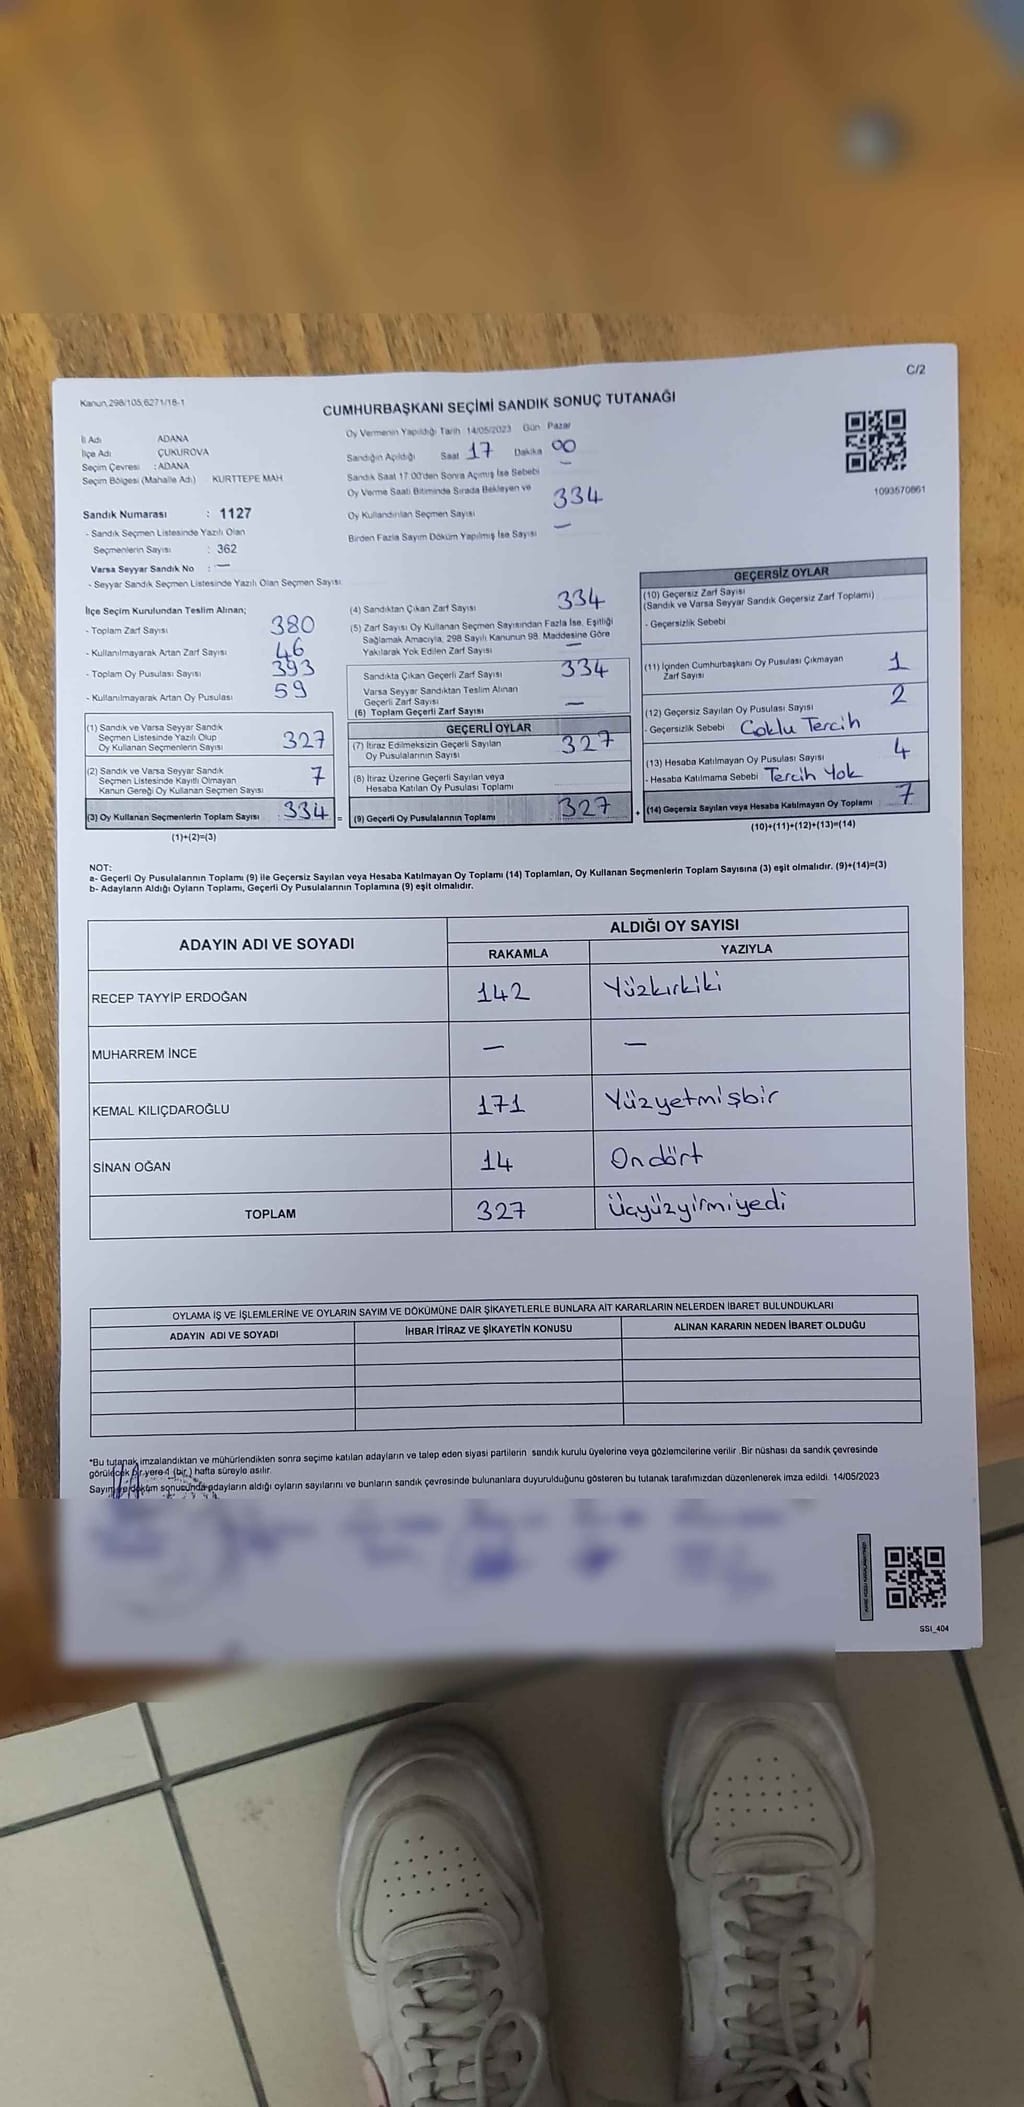 C/2
Kanun,298/105,6271/18-1
CUMHURBAŞKANI SEÇİMİ SANDIK SONUÇ TUTANAĞI
İl Adı ADANA
İlçe Adı ÇUKUROVA
Seçim Çevresi : ADANA
Seçim Bölgesi (Mahalle Adı) KURTTEPE MAH
Sandık Numarası : 1127
- Sandık Seçmen Listesinde Yazılı Olan
Seçmenlerin Sayısı : 362
Varsa Seyyar Sandık No : —
- Seyyar Sandık Seçmen Listesinde Yazılı Olan Seçmen Sayısı
Oy Vermenin Yapıldığı Tarih 14/05/2023 Gün Pazar
Sandığın Açıldığı Saat 17 Dakika 00
Sandık Saat 17:00'den Sonra Açımış İse Sebebi —
Oy Verme Saati Bitiminde Sırada Bekleyen ve
Oy Kullandırılan Seçmen Sayısı 334
Birden Fazla Sayım Döküm Yapılmış İse Sayısı —
1093570861
İlçe Seçim Kurulundan Teslim Alınan;
- Toplam Zarf Sayısı 380
- Kullanılmayarak Artan Zarf Sayısı 46
- Toplam Oy Pusulası Sayısı 393
- Kullanılmayarak Artan Oy Pusulası 59
(1) Sandık ve Varsa Seyyar Sandık
Seçmen Listesinde Yazılı Olup
Oy Kullanan Seçmenlerin Sayısı 327
(2) Sandık ve Varsa Seyyar Sandık
Seçmen Listesinde Kayıtlı Olmayan
Kanun Gereği Oy Kullanan Seçmen Sayısı 7
(3) Oy Kullanan Seçmenlerin Toplam Sayısı 334 =
(1)+(2)=(3)
(4) Sandıktan Çıkan Zarf Sayısı 334
(5) Zarf Sayısı Oy Kullanan Seçmen Sayısından Fazla İse, Eşitliği
Sağlamak Amacıyla, 298 Sayılı Kanunun 98. Maddesine Göre
Yakılarak Yok Edilen Zarf Sayısı —
Sandıkta Çıkan Geçerli Zarf Sayısı 334
Varsa Seyyar Sandıktan Teslim Alınan
Geçerli Zarf Sayısı —
(6) Toplam Geçerli Zarf Sayısı
GEÇERLİ OYLAR
(7) İtiraz Edilmeksizin Geçerli Sayılan
Oy Pusulalarının Sayısı 327
(8) İtiraz Üzerine Geçerli Sayılan veya
Hesaba Katılan Oy Pusulası Toplamı
(9) Geçerli Oy Pusulalarının Toplamı 327 +
GEÇERSİZ OYLAR
(10) Geçersiz Zarf Sayısı
(Sandık ve Varsa Seyyar Sandık Geçersiz Zarf Toplamı)
- Geçersizlik Sebebi
(11) İçinden Cumhurbaşkanı Oy Pusulası Çıkmayan
Zarf Sayısı 1
(12) Geçersiz Sayılan Oy Pusulası Sayısı 2
- Geçersizlik Sebebi Çoklu Tercih
(13) Hesaba Katılmayan Oy Pusulası Sayısı 4
- Hesaba Katılmama Sebebi Tercih Yok
(14) Geçersiz Sayılan veya Hesaba Katılmayan Oy Toplamı 7
(10)+(11)+(12)+(13)=(14)
NOT:
a- Geçerli Oy Pusulalarının Toplamı (9) ile Geçersiz Sayılan veya Hesaba Katılmayan Oy Toplamı (14) Toplamları, Oy Kullanan Seçmenlerin Toplam Sayısına (3) eşit olmalıdır. (9)+(14)=(3)
b- Adayların Aldığı Oyların Toplamı, Geçerli Oy Pusulalarının Toplamına (9) eşit olmalıdır.
ADAYIN ADI VE SOYADI
ALDIĞI OY SAYISI
RAKAMLA YAZIYLA
RECEP TAYYİP ERDOĞAN 142 Yüzkırkiki
MUHARREM İNCE — —
KEMAL KILIÇDAROĞLU 171 Yüzyetmişbir
SİNAN OĞAN 14 Ondört
TOPLAM 327 Üçyüzyirmiyedi
OYLAMA İŞ VE İŞLEMLERİNE VE OYLARIN SAYIM VE DÖKÜMÜNE DAİR ŞİKAYETLERLE BUNLARA AİT KARARLARIN NELERDEN İBARET BULUNDUKLARI
ADAYIN ADI VE SOYADI İHBAR İTİRAZ VE ŞİKAYETİN KONUSU ALINAN KARARIN NEDEN İBARET OLDUĞU
*Bu tutanak imzalandıktan ve mühürlendikten sonra seçime katılan adayların ve talep eden siyasi partilerin sandık kurulu üyelerine veya gözlemcilerine verilir. Bir nüshası da sandık çevresinde
görülecek bir yere 1 (bir) hafta süreyle asılır.
Sayım ve döküm sonucunda adayların aldığı oyların sayılarını ve bunların sandık çevresinde bulunanlara duyurulduğunu gösteren bu tutanak tarafımızdan düzenlenerek imza edildi. 14/05/2023
SSI_404